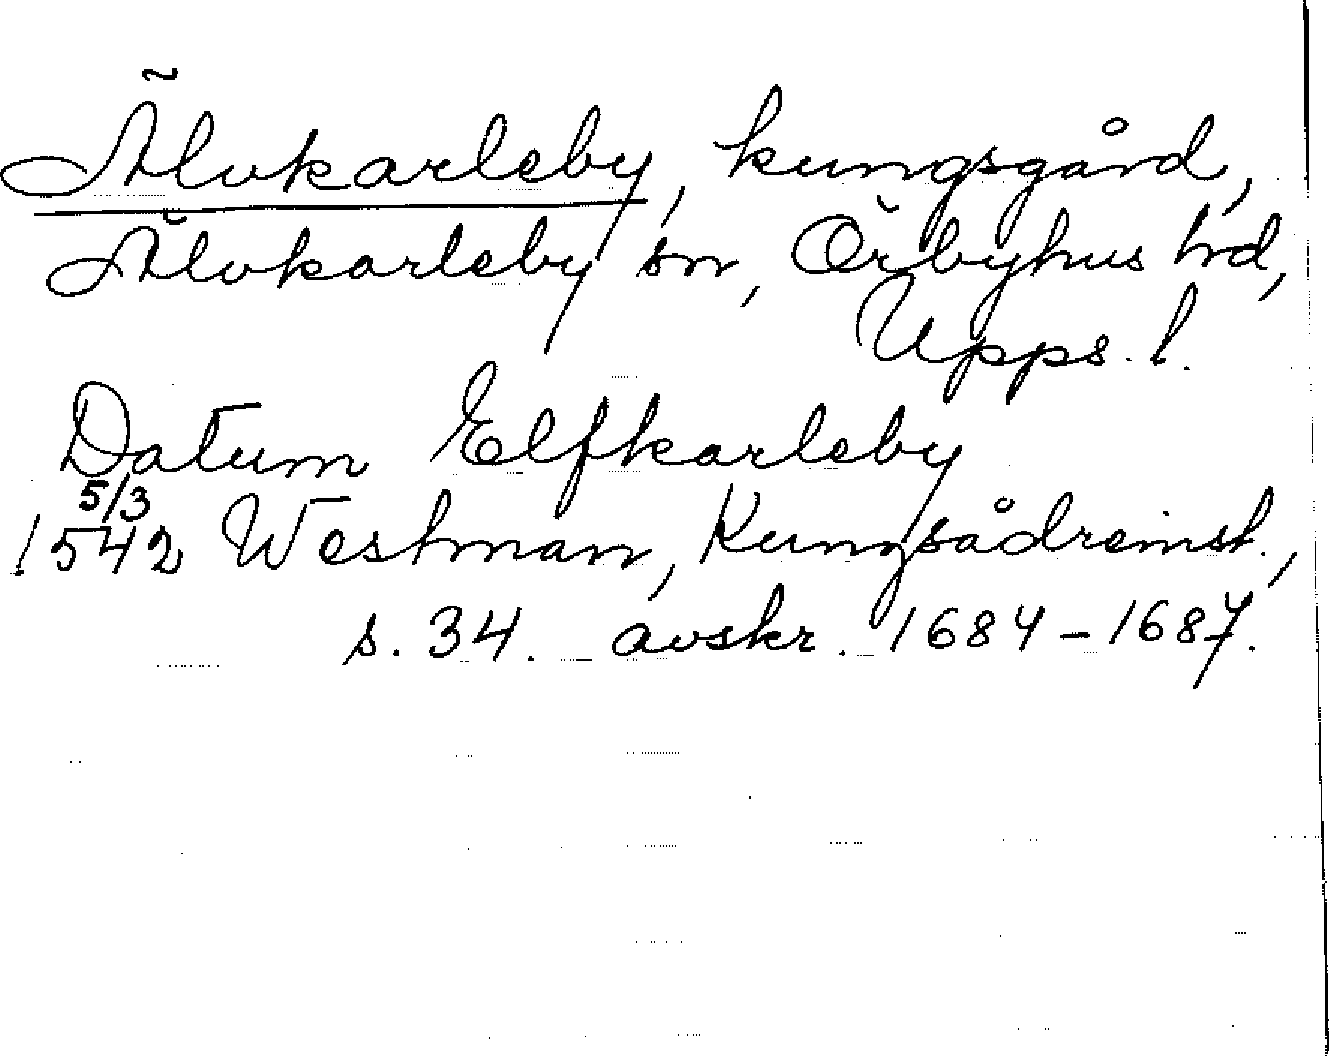 Älvkarleby, kungsgård,
Älvkarleby sn, Örbyhus hd,
Upps. l.
Datum Elfkarleby
5/3
1542 Westman, Kungsådreinst.,
s. 34. avskr. 1684-1687.